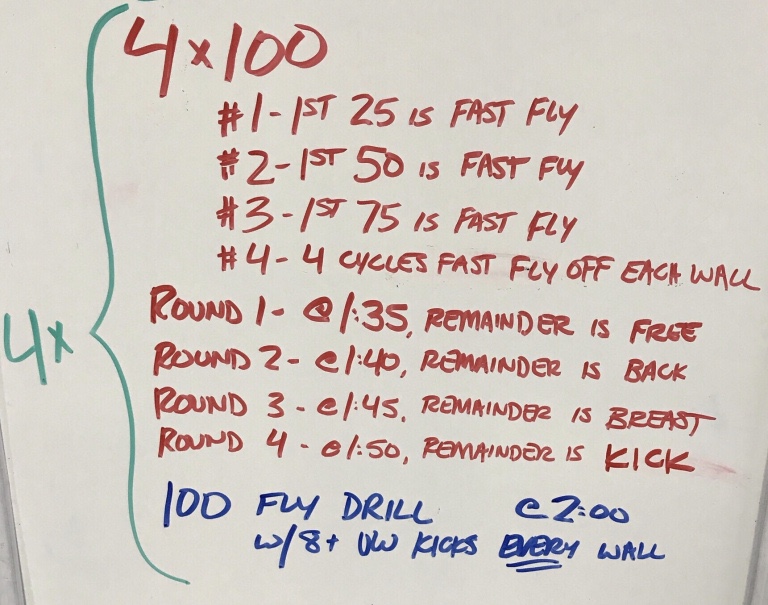 4x100
#1-1ST 25 IS FAST FLY
#2-1ST 50 IS FAST FLY
#3-1ST 75 IS FAST FLY
#4-4 CYCLES FAST FLY OFF EACH WALL
4x
ROUND 1- @1:35, REMAINDER IS FREE
ROUND 2- @1:40, REMAINDER IS BACK
ROUND 3-@1:45, REMAINDER IS BREAST
ROUND 4-@1:50, REMAINDER IS KICK
100 FLY DRILL @2:00
W/8+ UW KICKS EVERY WALL